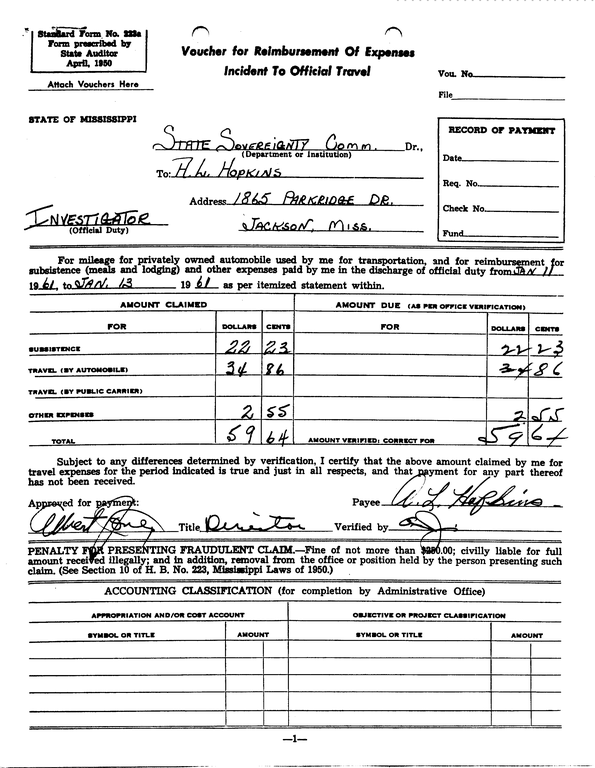 Standard Form No. 223a
Form prescribed by
State Auditor
April, 1950
Attach Vouchers Here
Voucher for Reimbursement Of Expenses
Incident To Official Travel
Vou. No.
File
STATE OF MISSISSIPPI
STATE SOVEREIGNTY COMM. Dr.,
(Department or Institution)
To: A. L. HOPKINS
Address 1865 PARKRIDGE DR.
INVESTIGATOR
(Official Duty)
JACKSON, MISS.
RECORD OF PAYMENT
Date
Req. No.
Check No.
Fund
For mileage for privately owned automobile used by me for transportation, and for reimbursement for
subsistence (meals and lodging) and other expenses paid by me in the discharge of official duty from JAN 11
1961, to JAN. 13 1961 as per itemized statement within.
AMOUNT CLAIMED AMOUNT DUE (AS PER OFFICE VERIFICATION)
FOR DOLLARS CENTS FOR DOLLARS CENTS
SUBSISTENCE 22 23 22 23
TRAVEL (BY AUTOMOBILE) 34 86 34 86
TRAVEL (BY PUBLIC CARRIER)
OTHER EXPENSES 2 55 2 55
TOTAL 59 64 AMOUNT VERIFIED; CORRECT FOR 59 64
Subject to any differences determined by verification, I certify that the above amount claimed by me for
travel expenses for the period indicated is true and just in all respects, and that payment for any part thereof
has not been received.
Approved for payment: Payee A. L. Hopkins
Albert Jones Title Director Verified by
PENALTY FOR PRESENTING FRAUDULENT CLAIM.—Fine of not more than $250.00; civilly liable for full
amount received illegally; and in addition, removal from the office or position held by the person presenting such
claim. (See Section 10 of H. B. No. 223, Mississippi Laws of 1950.)
ACCOUNTING CLASSIFICATION (for completion by Administrative Office)
APPROPRIATION AND/OR COST ACCOUNT OBJECTIVE OR PROJECT CLASSIFICATION
SYMBOL OR TITLE AMOUNT SYMBOL OR TITLE AMOUNT
—1—